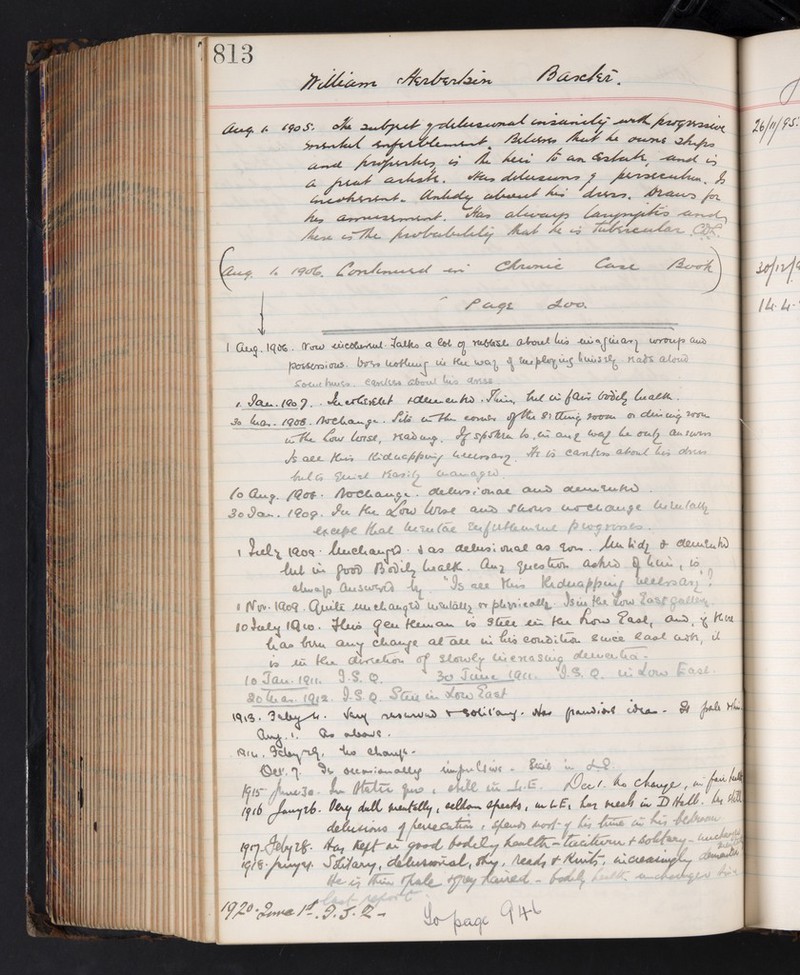 813
William Herbertson Baxter.
Aug. 1. 1905. The subject of delusional insanity with progressive
mental enfeeblement. Believes that he owns ships
and properties, is the heir to an estate, and is
a great artist. Has delusions of persecution. Is
incoherent. Untidy about his dress. Draws for
his amusement. Has always laryngitis and
there is the probability that he is Tubercular.
(Aug. 1. 1906. Continued in Chronic Case Book)
Page 200.
1 Aug. 1906. Now incoherent. Talks a lot of rubbish about his imaginary wrongs and
possessions. Does nothing in the way of employing himself. Reads aloud
sometimes. Careless about his dress.
1. Jan. 1907. Incoherent & demented. Thin, but in fair bodily health.
30 Mar. 1908. No change. Sits in the corner of the sitting room or dining room
in the Low West, reading. If spoken to, in any way he only answers
Is all this kidnapping necessary. He is careless about his dress
but is quiet & easily managed.
10 Aug. 1908. No change. delusional and demented.
30 Jan. 1909. In the Low West and shows no change mentally
except that mental enfeeblement progresses.
1 July 1909. Unchanged. Is as delusional as ever. Untidy & demented
but in good Bodily health. Any question asked of him, is
always answered by "Is all this kidnapping necessary?
1 Nov. 1909. Quite unchanged mentally or physically. Is in the Low East gallery.
10 July 1910. This gentleman is still in the Low East, and, if there
has been any change at all in his condition since last note, it
is in the direction of slowly increasing dementia.
10 Jan. 1911. I.S.Q. 30 June 1911. I.S.Q. in Low East.
20 Mar. 1912. I.S.Q. Still in Low East
1913. Feby 4. Very reserved & solitary. Has grandiose ideas. Is pale & thin.
Aug. 1. As above.
1914. Feby 29. No change.
Oct. 7. Is occasionally impulsive. Still in L.E.
1915 June 30. In Statu quo, still in L.E. Dec 1. No change, in fair health
1916 Jany 26. Very dull mentally, seldom speaks, in L.E, has meals in D Hall. has still
delusions of persecution, spends most of his time in his bedroom
1917. Feby 28. Has kept in good bodily health - taciturn & solitary - unchanged mentally
1918. Solitary, delusional, shy, reads & knits, increasingly demented
He is thin & pale & grey haired - bodily health unchanged since
last report.
1920. June 1st. I.S.Q.-
To page 946
26/11/95.
30/12/9
14.4.